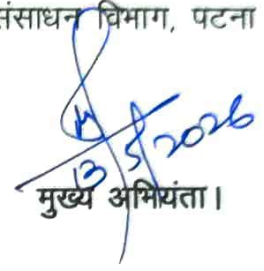 संसाधन विभाग, पटना
13/5/2026
मुख्य अभियंता।